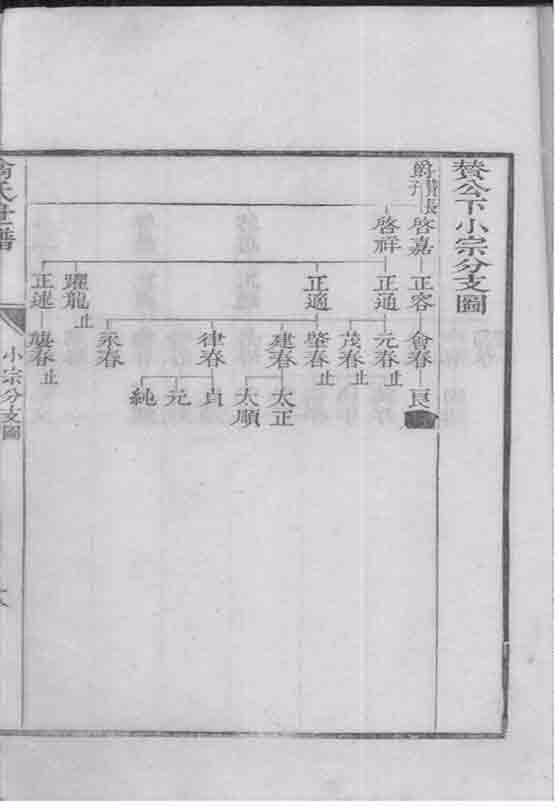 贊公下小宗分支圖
爵子
長
啓嘉
啓祥
正容
正通
正適
躍龍止
正逑
會春
元春止
茂春止
肇春止
建春
律春
永春
旗春止
良
太正
太順
貞
元
純
氏世譜
小宗分支圖